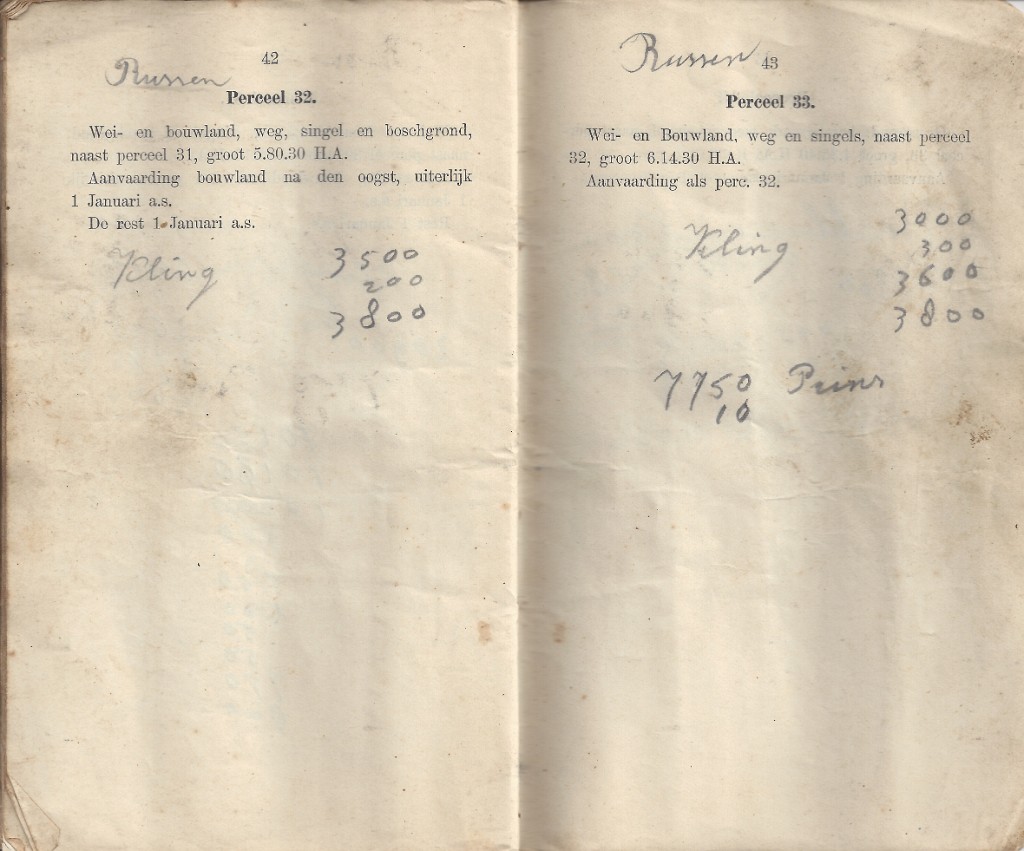 42
Russen
Perceel 32.
Wei- en bouwland, weg, singel en boschgrond,
naast perceel 31, groot 5.80.30 H.A.
Aanvaarding bouwland na den oogst, uiterlijk
1 Januari a.s.
De rest 1 Januari a.s.
Kling 3500
200
3800
Russen 43
Perceel 33.
Wei- en Bouwland, weg en singels, naast perceel
32, groot 6.14.30 H.A.
Aanvaarding als perc. 32.
Kling 3000
300
3600
3800
7750 Prins
10